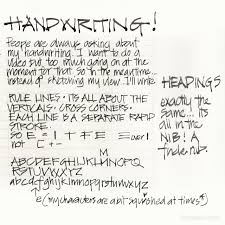 HANDWRITING!
People are always asking about
my handwriting. I want to do a
video but too much going on at the
moment for that so in the meantime...
instead of sketching my view I'll write
RULE LINES · ITS ALL ABOUT THE
VERTICALS · CROSS CORNERS ·
EACH LINE IS A SEPARATE RAPID
STROKE.
so E = I T F E = over I
not C +-
M
ABCDEFGHIJKLMNOPQ
RSTUVWXYZ
abcdefghijklmnopqrstumwxyz
e (my characters are a bit squished at times)
HEADINGS
exactly the
same... its
all in the
NIB! A
rub.